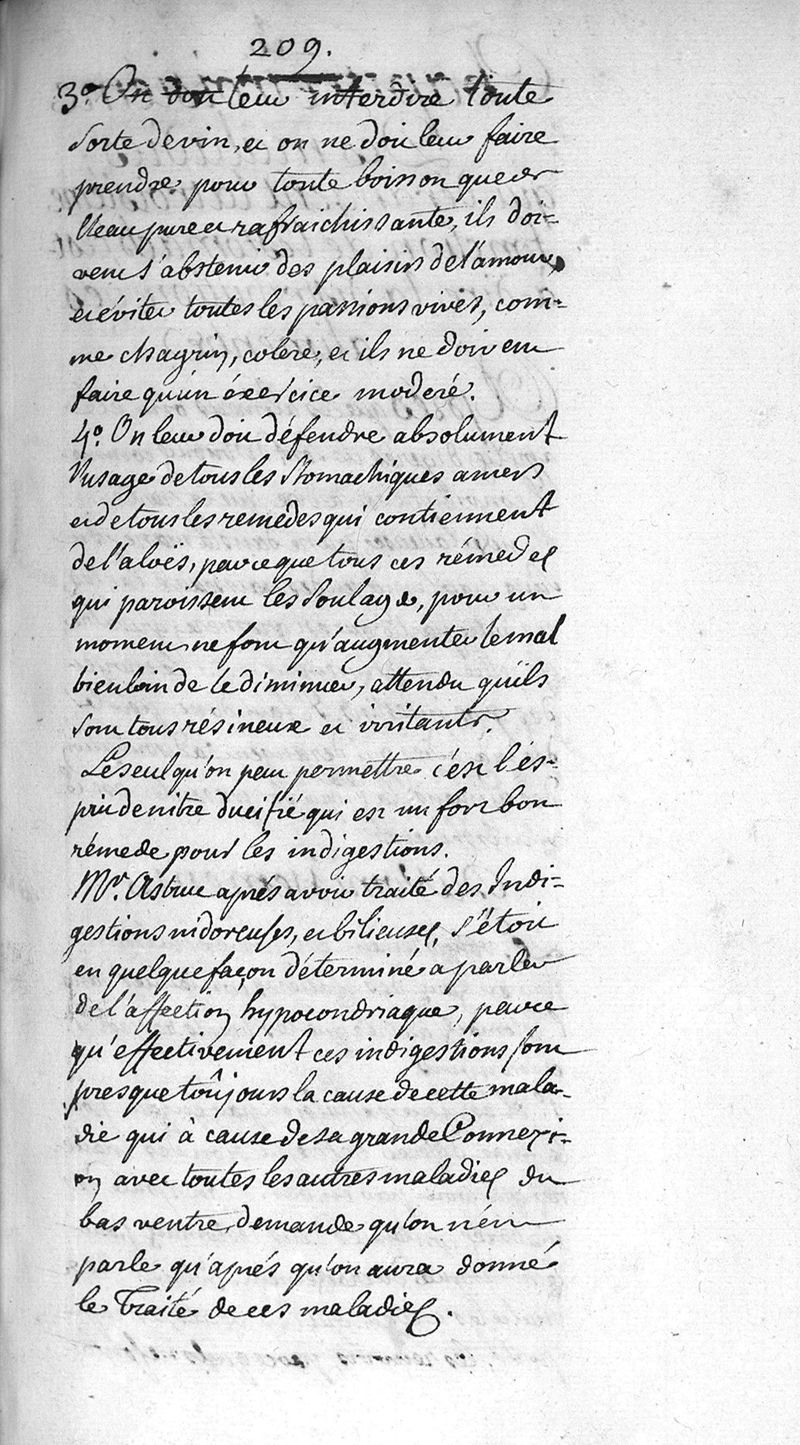 209.
3.° On doit leur interdire toute
sorte de vin, et on ne doit leur faire
prendre pour toute boisson que de
l'eau pure et rafraichissante, ils doi-
vent s'abstenir des plaisirs de l'amour,
et éviter toutes les passions vives, com-
me chagrin, colere, et ils ne doivent
faire qu'un éxercice moderé.
4.° On leur doit défendre absolument
l'usage de tous les stomachiques amers
et de tous les remedes qui contiennent
de l'aloës, parce que tous ces rémedes
qui paroissent les soulager, pour un
moment ne font qu'augmenter le mal
bien loin de le diminuer, attendu qu'ils
sont tous résineux et irritants.
Le seul qu'on peut permettre c'est l'és-
prit de nitre ducifié qui est un fort bon
rémede pour les indigestions.
Mr. Astruc aprés avoir traité des Indi-
gestions nidoreuses, et bilieuses, s'étoit
en quelque façon déterminé a parler
de l'affection hypocondriaque, parce
qu'effectivement ces indigestions sont
presque toûjours la cause de cette mala-
die qui à cause de sa grande Connexi-
on avec toutes les autres maladies du
bas ventre, demande qu'on n'én
parle qu'aprés qu'on aura donné
le Traité de ces maladies.